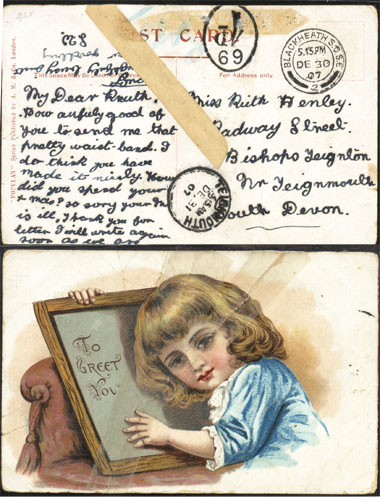 POST CARD
This Space May be
For Address only.
My Dear Ruth.
How awfully good of
you to send me that
pretty waist-band. I
do think you have
made it nicely. How
did you spend your
Xmas? So sorry your
is ill. Thank you for
letter I will write again
soon as we are
Miss Ruth Henley.
Radway Street.
Bishops Teignton
Nr Teignmouth
South Devon.
BLACKHEATH S.O. S.E.
5.15 PM
DE 30
07
2
69
TEIGNMOUTH
DE 31
07
TO
GREET
YOU